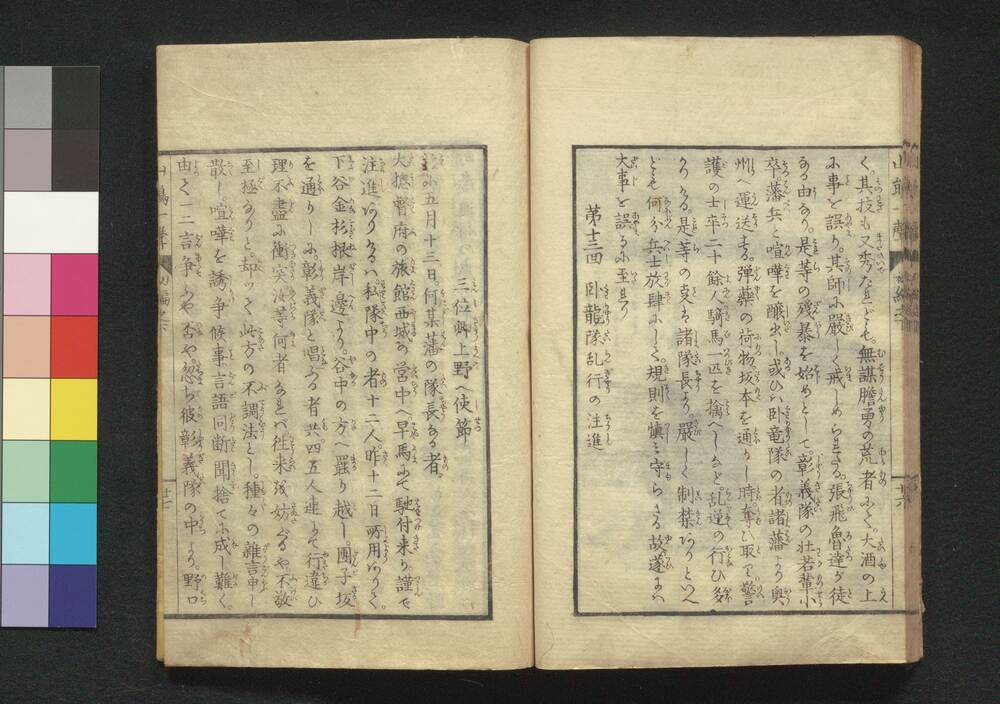 く。其技も又秀なれども。無謀膽勇の荒者にて。大酒の上
に事を誤り。其師に嚴しく戒しめらるゝ。張飛魯達が徒
なる由なり。是等の殘暴を始めとして。彰義隊の壮若輩小
卒。藩兵と喧嘩を釀出し。或ひハ卧竜隊の者諸藩より奥
州へ運送する。弾藥の荷物坂本を通りし時奪ひ取り。警
護の士卒二十餘人騎馬一匹を擒へしなど。乱逆の行ひ多
かりける。是等の叓を諸隊長より。嚴しく制禁ありといへ
ども何分兵士放肆にして。規則を慎み守らざる故遂には
大事を誤るに至れり
第十三回 卧龍隊乱行の注進
三位卿上野へ使節
五月十三日。何某藩の隊長なる者。
大摠督府の旅館西城の宮中へ。早馬にて馳付来り謹で
注進ありけるハ私隊中の者十二人。昨十二日所用ありて。
下谷金杉根岸邊より。谷中の方へ罷り越し。團子坂
を通りしに。彰義隊と唱ふる者共四五人連にて行違ひ
理不盡に衝突汝等何者なれバ往来を妨ぐるや不敬
至極なりと。却つて此方の不調法とし。種々の雜言申し
散し。喧嘩を誘ひ争ひ候事言語同断聞捨てに成し難く。
由て一二言争ふや否や。忽ち彼彰義隊の中より。野口